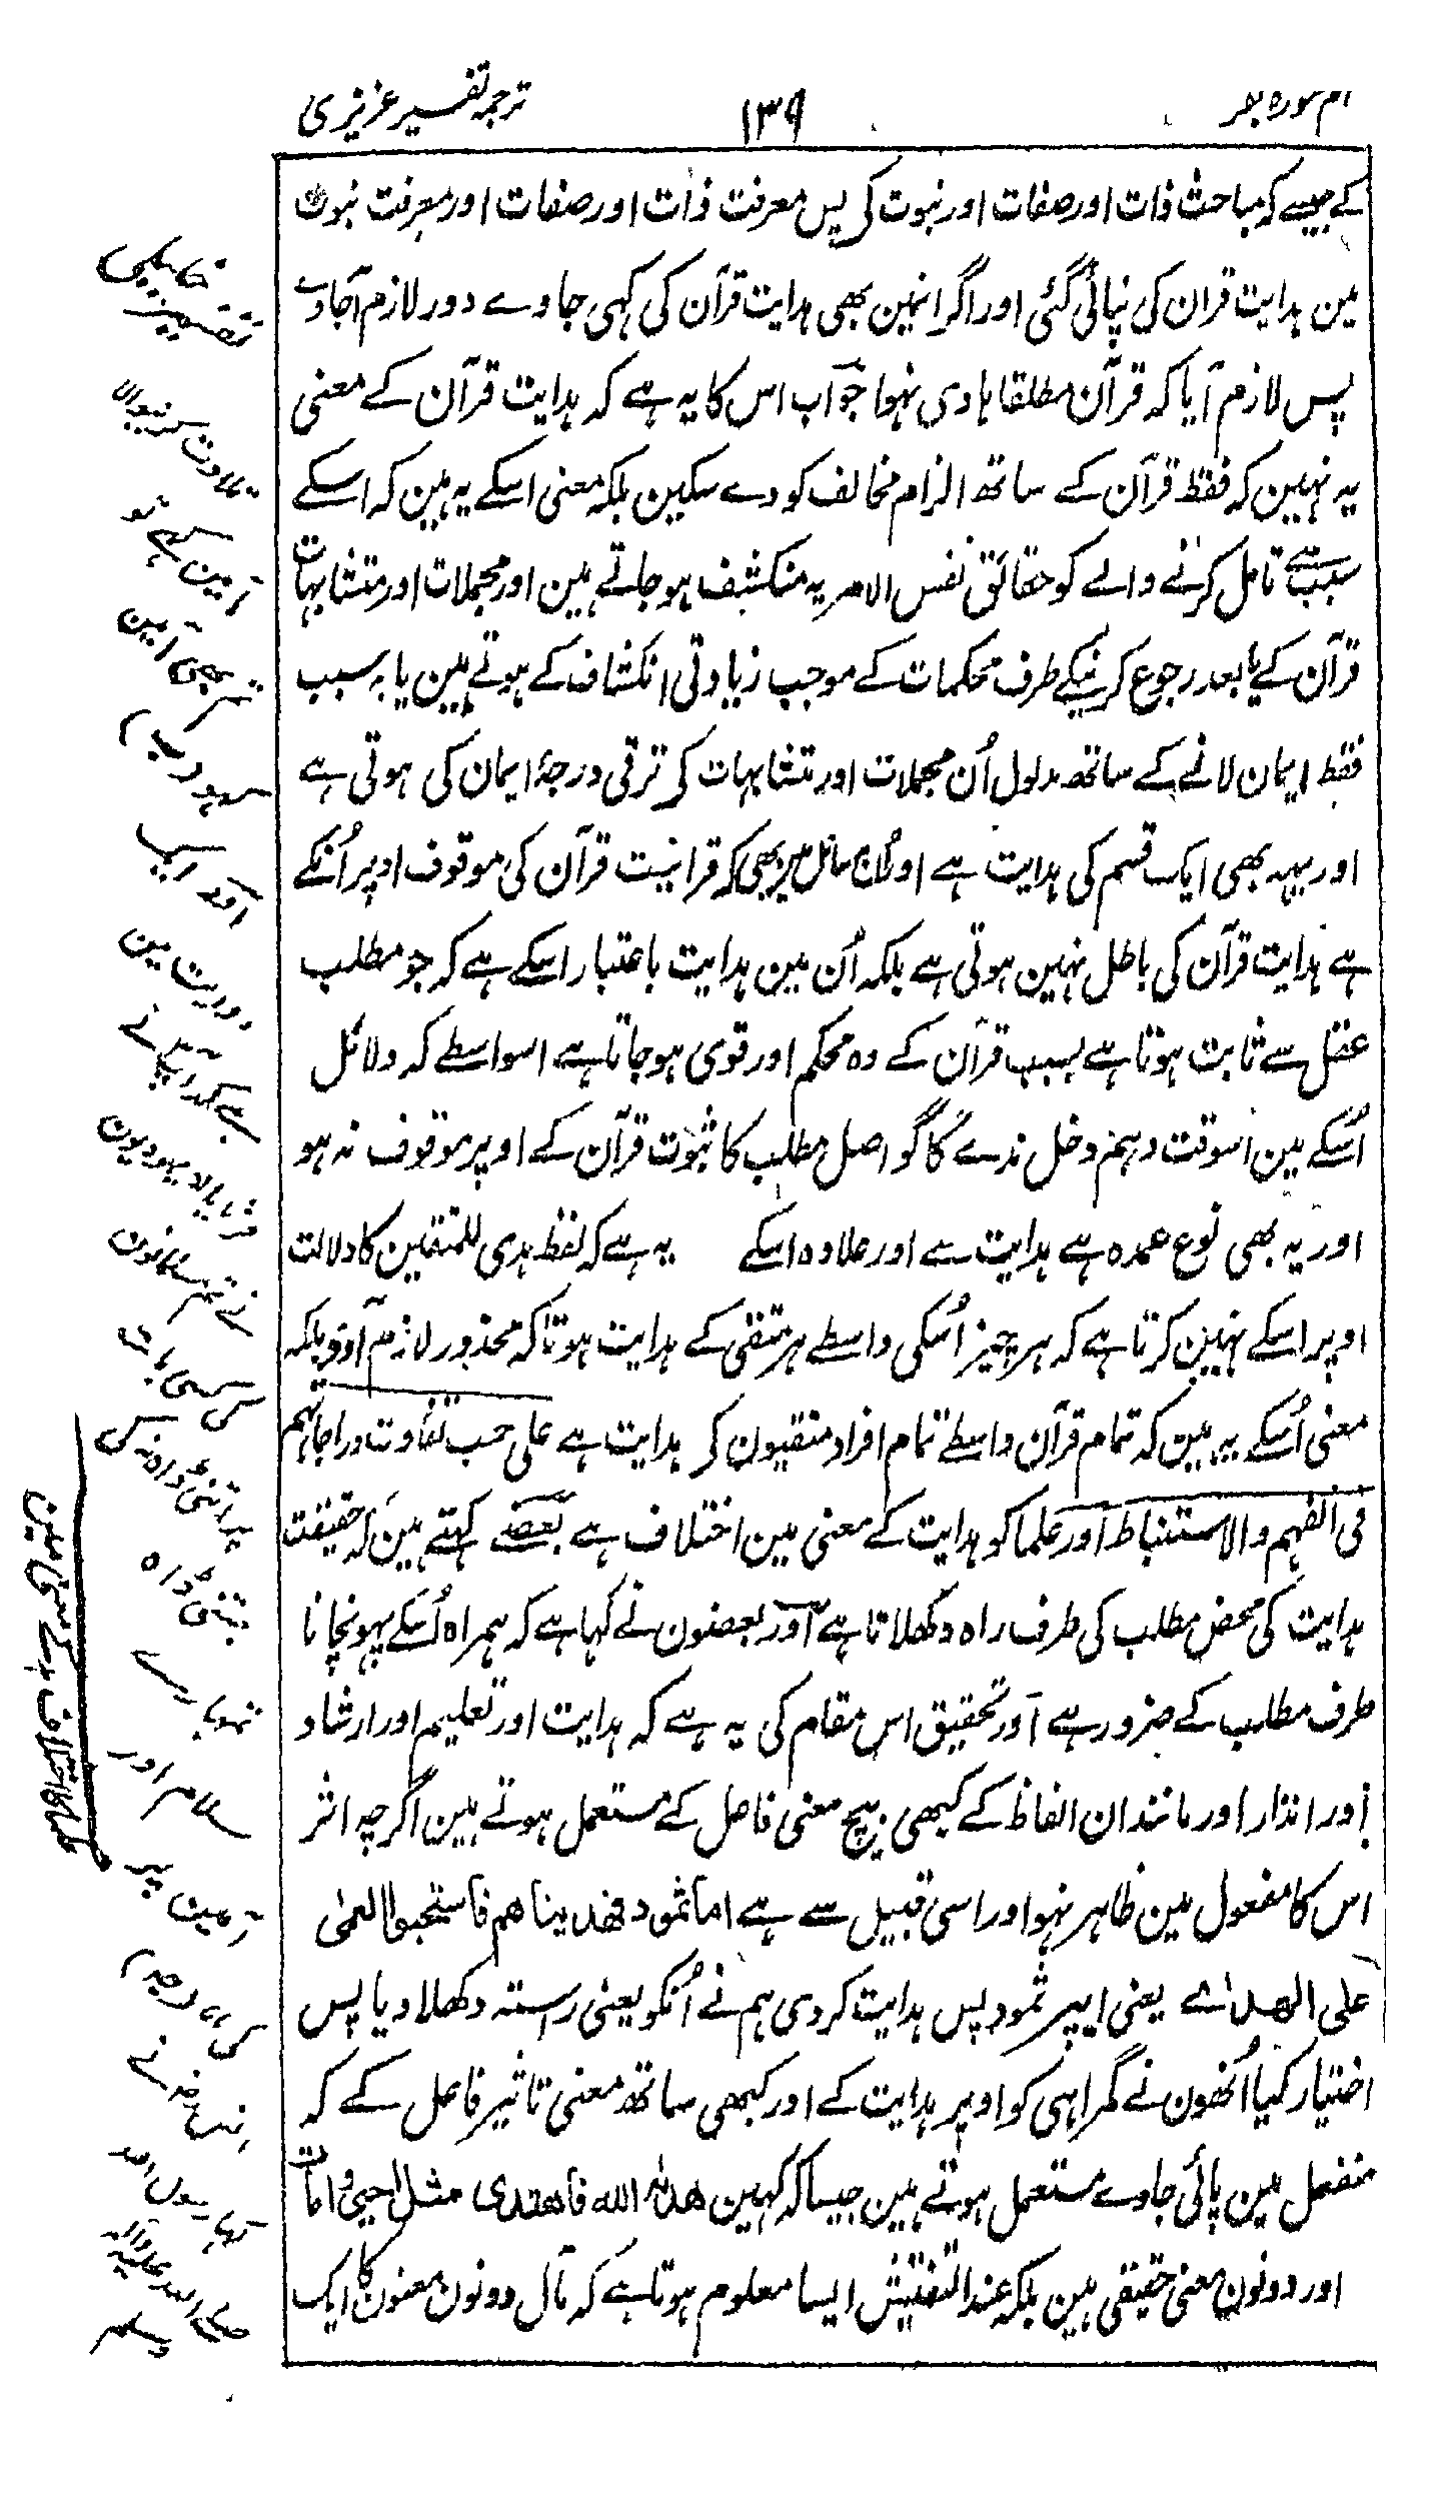 الم سورہ بقر
۱۳۹
ترجمہ تفسیر عزیزی
کے جیسے کہ مباحث ذات اور صفات اور نبوت کی پس معرفت ذات اور صفات اور معرفت نبوت
مین ہدایت قران کی نپائی گئی اور اگر انہین بھی ہدایت قرآن کی کہی جاوے دور لازم آجاوے
پس لازم آیا کہ قرآن مطلقا ہادی نہوا جوآب اس کا یہ ہے کہ ہدایت قرآن کے معنی
یہ نہین کہ فقط قرآن کے ساتھ الزام مخالف کو دے سکین بلکہ معنی اسکے یہ ہین کہ اسکے
سبب سے تامل کرنے والے کو حقائق نفس الامریہ منکشف ہو جاتے ہین اور مجملات اور متشابہات
قرآن کے یا بعد رجوع کرنیکے طرف محکمات کے موجب زیادتی انکشاف کے ہوتے ہین یا بہ سبب
فقط ایمان لانے کے ساتھ مدلول اُن مجملات اور متشابہات کی ترقی درجۂ ایمان کی ہوتی ہے
اور یہہ بھی ایک قسم کی ہدایت ہے اور اُن مسائل مین بھی کہ قرانیت قرآن کی موقوف اوپر اُنکے
ہے ہدایت قرآن کی باطل نہین ہوتی ہے بلکہ اُن مین ہدایت باعتبار اسکے ہے کہ جو مطلب
عقل سے ثابت ہوتا ہے بسبب قرآن کے وہ محکم اور قوی ہو جاتا ہے اسواسطے کہ دلائل
اُسکے مین اسوقت وہم دخل ندے گا گو اصل مطلب کا ثبوت قرآن کے اوپر موقوف نہ ہو
اور یہ بھی نوع عمدہ ہے ہدایت سے اور علاوہ اسکے یہ ہے کہ لفظ ہدی للمتقین کا دلالت
اوپر اسکے نہین کرتا ہے کہ ہر چیز اُسکی واسطے ہر متقی کے ہدایت ہو تا کہ محذور لازم آوے بلکہ
معنی اُسکے یہ ہین کہ تمام قرآن واسطے تمام افراد متقیون کی ہدایت ہے علی حسب تفاوت دراجاتہم
فی الفہم والاستنباط اور علما کو ہدایت کے معنی مین اختلاف ہے بعضے کہتے ہین کہ حقیقت
ہدایت کی محض مطلب کی طرف راہ دکھلاتا ہے اور بعضون نے کہا ہے کہ ہمراہ اُسکے پہونچانا
طرف مطلب کے ضرور ہے آور تحقیق اس مقام کی یہ ہے کہ ہدایت اور تعلیم اور ارشاد
اور انذار اور مانند ان الفاظ کے کبھی بیچ معنی فاعل کے مستعمل ہوتے ہین اگرچہ اثر
اس کا مفعول مین ظاہر نہو اور اسی قبیل سے ہے اما ثمود فھدیناھم فاستحبوا العمی
علی الھدےٰ یعنی ایپر ثمود پس ہدایت کر دی ہم نے اُنکو یعنی رستہ دکھلا دیا پس
اختیار کیا اُنھون نے گمراہی کو اوپر ہدایت کے اور کبھی ساتھ معنی تاثیر فاعل کے کہ
منفعل مین پائی جاوے مستعمل ہوتے ہین جیسا کہ کہین ھداہ اللہ فاھتدی مثل احیی و امات
اور دونون معنی حقیقی ہین بلکہ عند التفتیش ایسا معلوم ہوتا ہے کہ مآل دونون معنون کا ایک
تلاوت کرنیوالا
آمین کہے تو
بھی آمین